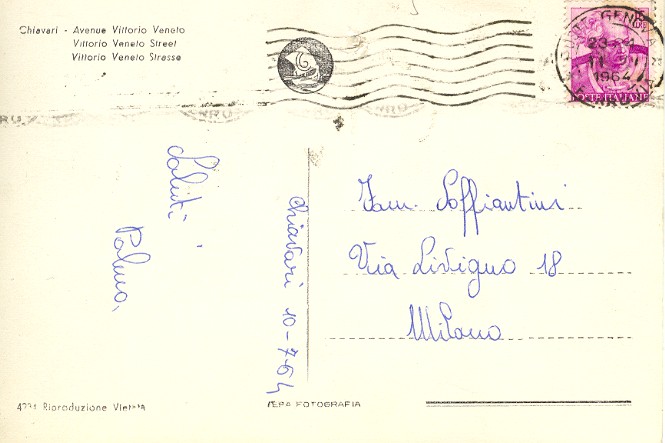 Chiavari - Avenue Vittorio Veneto
Vittorio Veneto Street
Vittorio Veneto Strasse
GENOVA
23
11
1964
POSTE ITALIANE
Saluti
Palma
Chiavari 10-7-64
Fam. Soffiantini
Via Livigno 18
Milano
Riproduzione Vietata
VERA FOTOGRAFIA